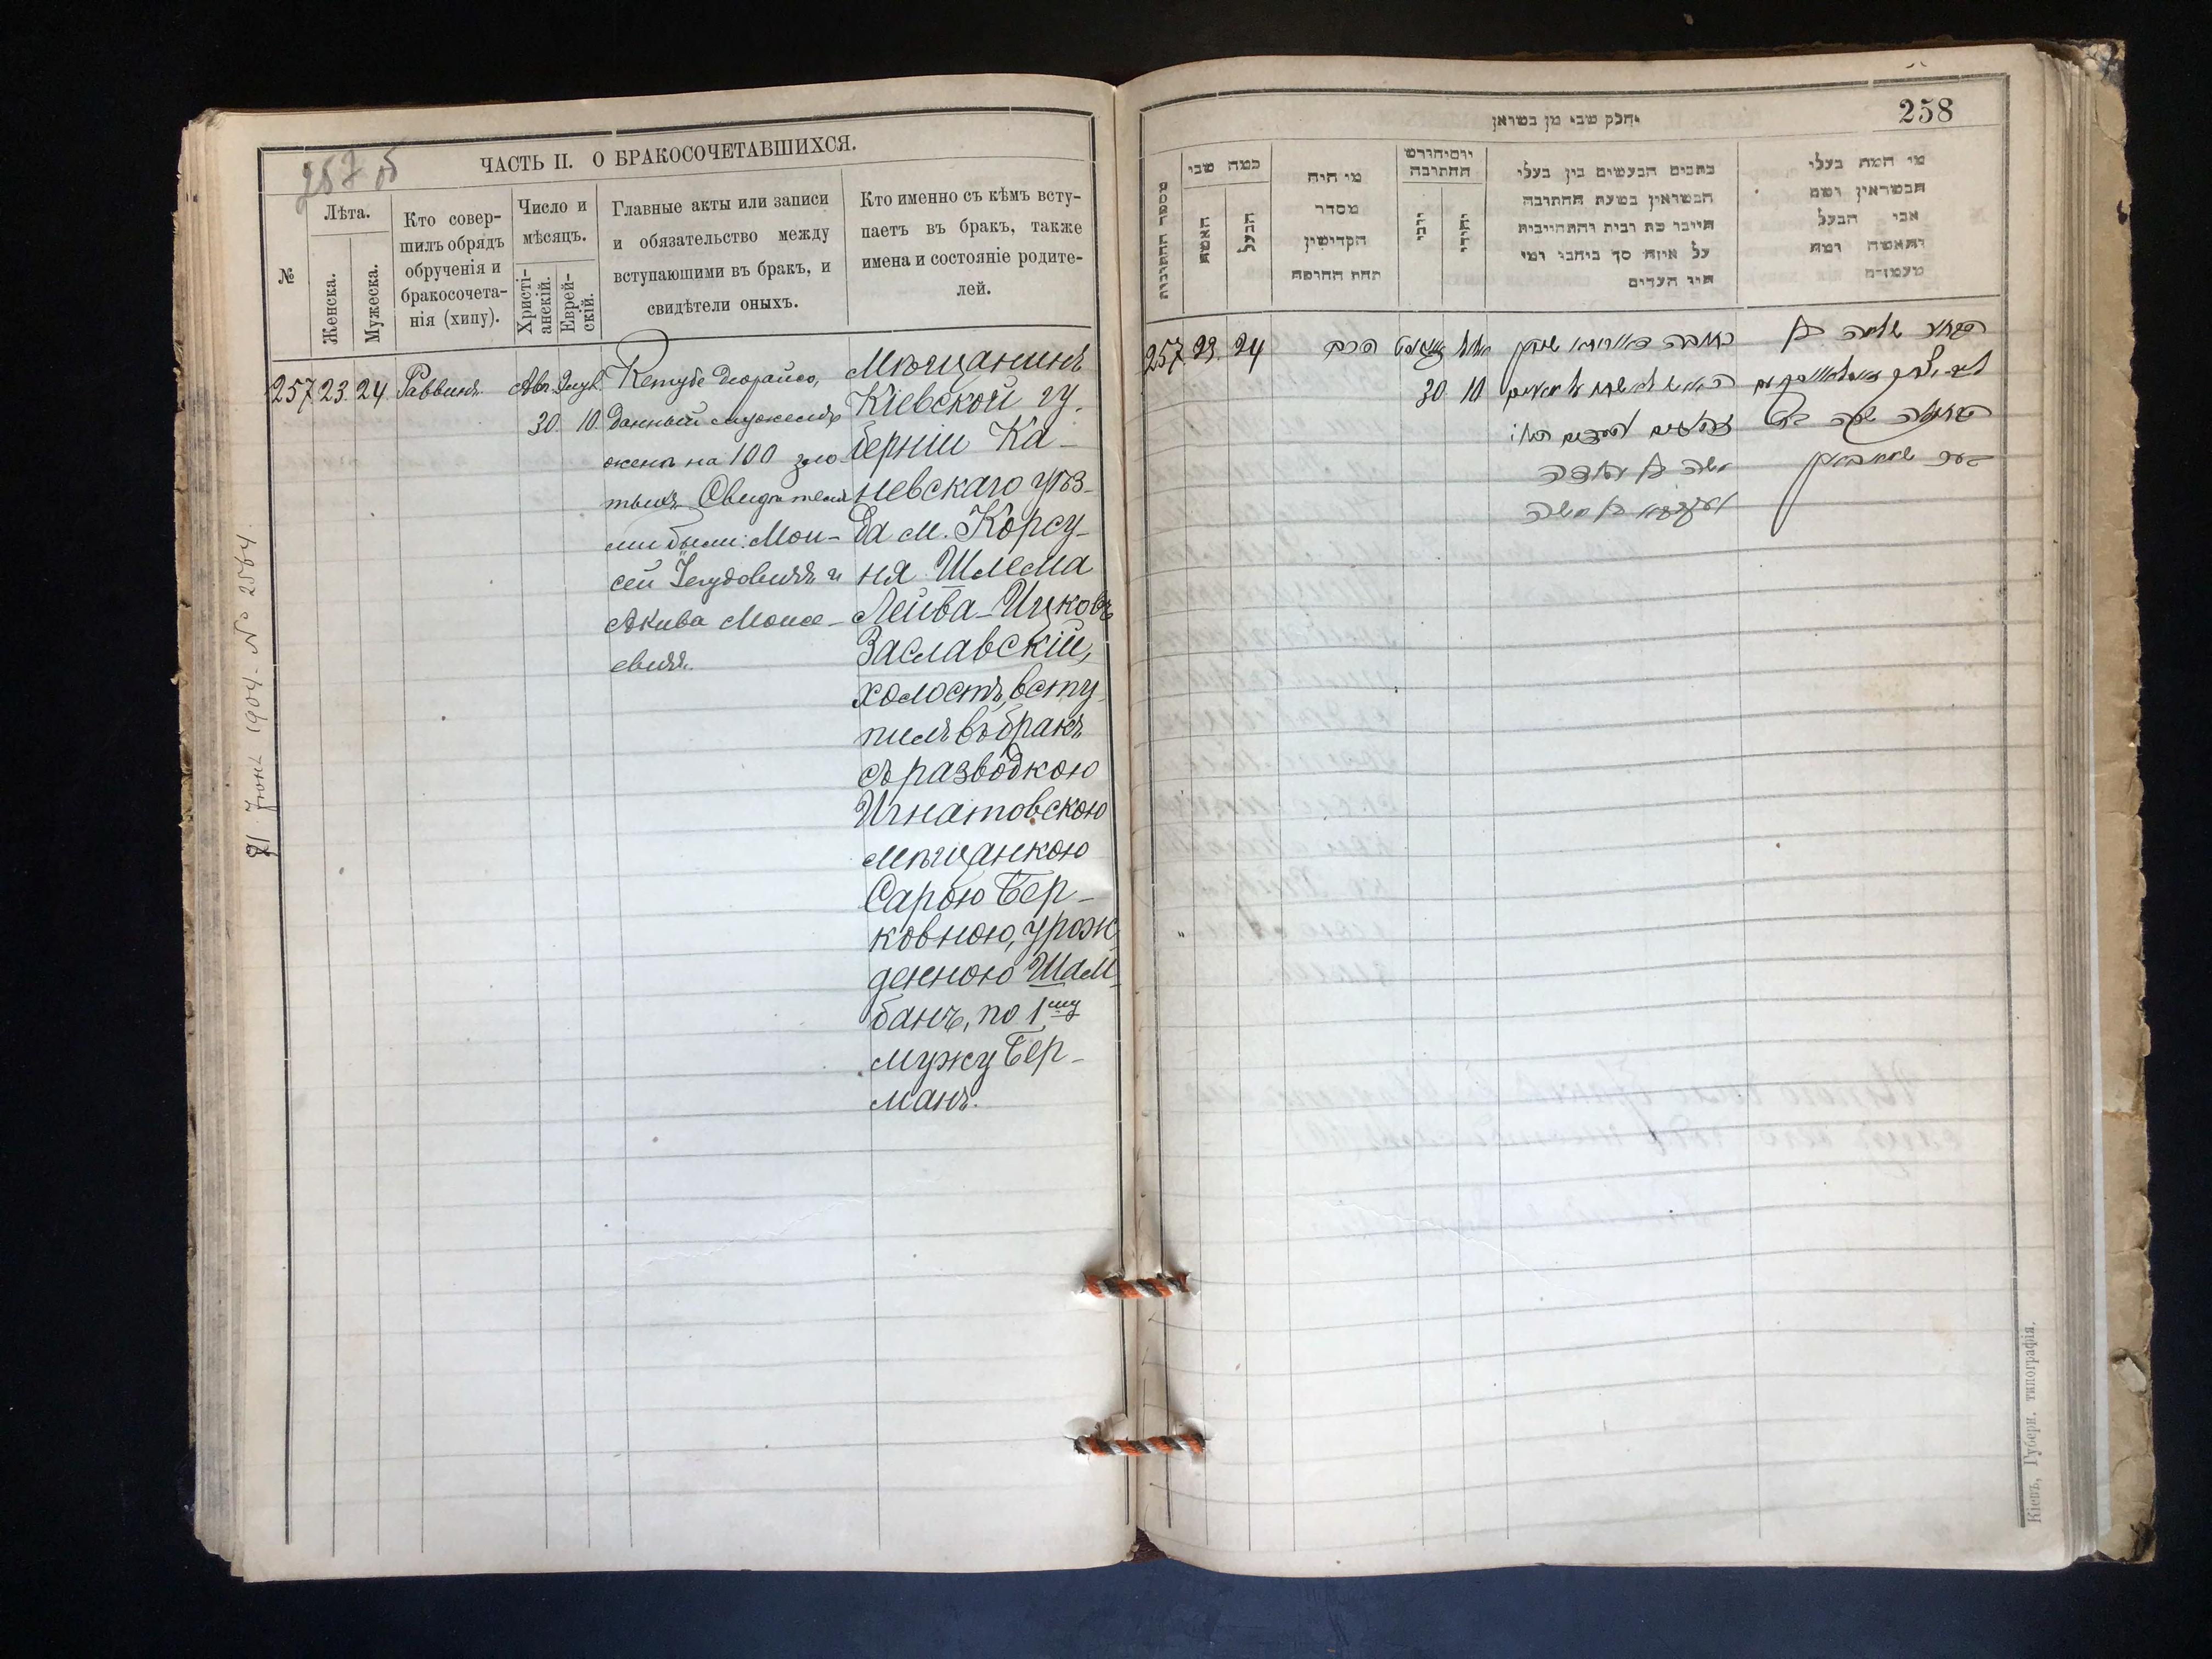 257 об
ЧАСТЬ II. О БРАКОСОЧЕТАВШИХСЯ.
№
Лѣта.
Женска.
Мужеска.
Кто совер-
шилъ обрядъ
обрученія и
бракосочета-
нія (хипу).
Число и
мѣсяцъ.
Христі-
анскій.
Еврей-
скій.
Главные акты или записи
и обязательство между
вступающими въ бракъ, и
свидѣтели оныхъ.
Кто именно съ кѣмъ всту-
паетъ въ бракъ, также
имена и состояніе родите-
лей.
257
23.
24
Раввинъ.
Авг.
30.
Элул.
10.
Кетубе деорайсо,
данный мужемъ
жене на 100 зло-
тыхъ. Свидѣтеля-
ми были: Мои-
сей Іегудовичъ и
Акива Моисе-
евичъ.
Мѣщанинъ
Кіевской гу-
берніи Ка-
невскаго уѣз-
да м. Корсу-
ня Шлема
Лейба-Ицковъ
Заславскій,
холостъ, всту-
пилъ въ бракъ
съ разводкою
Игнатовскою
мѣщанкою
Сарою Бер-
ковною, урож-
денною Шам-
банъ, по 1му
мужу Бер-
манъ.
21 Іюня 1904. № 2564.
258
יחלק שבי מן בשואן
מספר החתובות
כמה שבי
האשה
הבעל
מי היה
מסדר
הקדישין
תחת החופה
יוםיחודש
החתובה
כתבים הנעשים בין בעלי
הנשואין בשעת החתובה
על איזה סך ביחבי ומי
היו העדים
מי המה בעלי
הנשואין ושם
אבי הבעל
והאשה ומה
מעמדם
257.
23.
24
הרב
אויגוסט
30.
אלול
10.
משה בן יהודה
עקיבא בן משה
Кіевъ, Губерн. типографія.